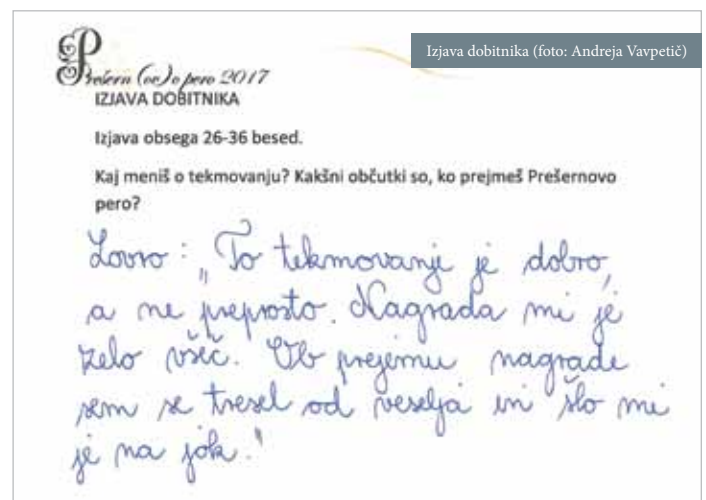 Izjava dobitnika (foto: Andreja Vavpetič)
Prešern(ov)o pero 2017
IZJAVA DOBITNIKA
Izjava obsega 26-36 besed.
Kaj meniš o tekmovanju? Kakšni občutki so, ko prejmeš Prešernovo
pero?
Lovro: „To tekmovanje je dobro,
a ne preprosto. Nagrada mi je
zelo všeč. Ob prejemu nagrade
sem se tresel od veselja in šlo mi
je na jok."